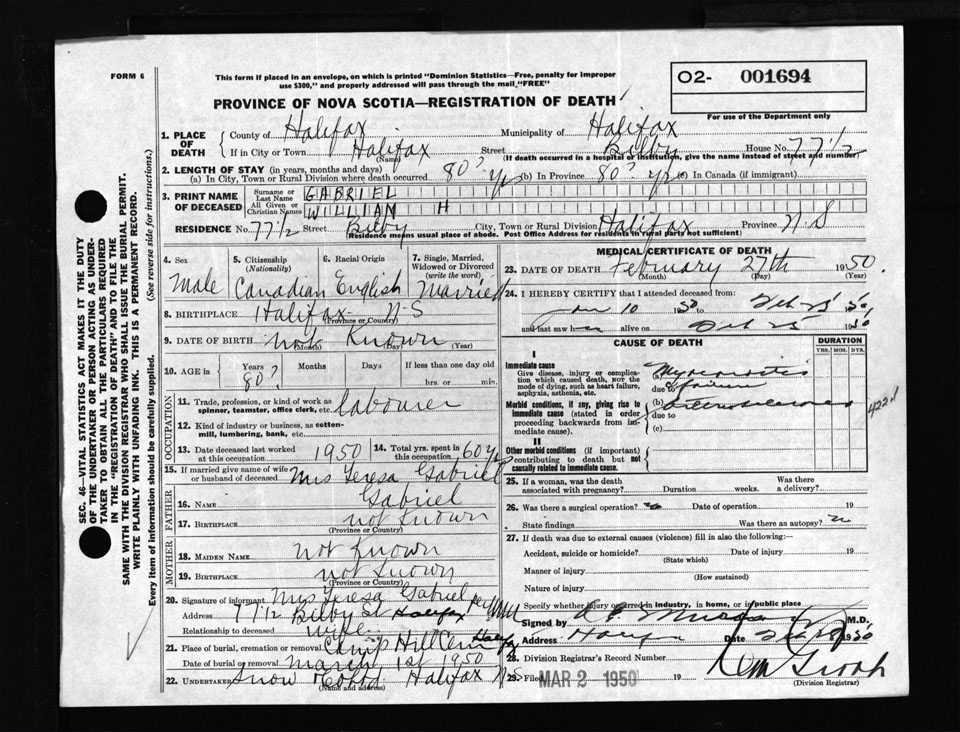 FORM 6
This form if placed in an envelope, on which is printed "Dominion Statistics—Free, penalty for improper
use $300," and properly addressed will pass through the mail "FREE"
O2- 001694
For use of the Department only
PROVINCE OF NOVA SCOTIA—REGISTRATION OF DEATH
1. PLACE OF DEATH
County of Halifax Municipality of Halifax
If in City or Town Halifax Street Bilby House No. 77 1/2
(Name) (If death occurred in a hospital or institution, give the name instead of street and number)
2. LENGTH OF STAY (in years, months and days)
(a) In City, Town or Rural Division where death occurred 80? yrs (b) In Province 80? yrs (c) In Canada (if immigrant)
3. PRINT NAME OF DECEASED
Surname or Last Name GABRIEL
All Given or Christian Names WILLIAM H
RESIDENCE No. 77 1/2 Street Bilby City, Town or Rural Division Halifax Province N.S
(Residence means usual place of abode. Post Office Address for residents in rural parts not sufficient)
4. Sex 5. Citizenship (Nationality) 6. Racial Origin 7. Single, Married, Widowed or Divorced (write the word)
Male Canadian English Married
8. BIRTHPLACE Halifax N-S
(Province or Country)
9. DATE OF BIRTH not Known
(Month) (Day) (Year)
10. AGE in Years Months Days If less than one day old
80? hrs. or min.
OCCUPATION
11. Trade, profession, or kind of work as
spinner, teamster, office clerk, etc. labourer
12. Kind of industry or business, as cotton-
mill, lumbering, bank, etc.
13. Date deceased last worked at this occupation 1950 14. Total yrs. spent in this occupation 60 yrs
15. If married give name of wife or husband of deceased Mrs Teresa Gabriel
FATHER
16. Name Gabriel
17. Birthplace not known
(Province or Country)
MOTHER
18. Maiden Name not known
19. Birthplace not known
(Province or Country)
20. Signature of informant Mrs Teresa Gabriel
Address 77 1/2 Bilby St Halifax
Relationship to deceased wife
21. Place of burial, cremation or removal Camp Hill Cem Halifax
Date of burial or removal March 1st 1950
22. Undertaker Snow Halifax N.S.
(Name and address)
MEDICAL CERTIFICATE OF DEATH
23. DATE OF DEATH February 27th 1950.
(Month) (Day) (Year)
24. I HEREBY CERTIFY that I attended deceased from:
Jan 10 1950 to Feb 1950
and last saw h alive on Feb 1950
CAUSE OF DEATH
DURATION
YRS. MOS. DYS.
I
Immediate cause
Give disease, injury or complica-
tion which caused death, NOT the
mode of dying, such as heart failure,
asphyxia, asthenia, etc.
(a) Myocarditis
due to
Morbid conditions, if any, giving rise to
immediate cause (stated in order
proceeding backwards from im-
mediate cause).
(b) arteriosclerosis
due to
(c)
422.1
II
Other morbid conditions (if important)
contributing to death but not
causally related to immediate cause.
25. If a woman, was the death associated with pregnancy? Duration weeks. Was there a delivery?
26. Was there a surgical operation? no Date of operation 19
State findings Was there an autopsy? no
27. If death was due to external causes (violence) fill in also the following:
Accident, suicide or homicide? Date of injury 19
(State which)
Manner of injury
(How sustained)
Nature of injury
Specify whether injury occurred in industry, in home, or in public place
Signed by M.D.
Address Date Feb 28 1950
28. Division Registrar's Record Number
29. Filed MAR 2 1950 19
(Division Registrar)
SEC. 46—VITAL STATISTICS ACT MAKES IT THE DUTY
OF THE UNDERTAKER OR PERSON ACTING AS UNDER-
TAKER TO OBTAIN ALL THE PARTICULARS REQUIRED
IN THE "REGISTRATION OF DEATH" AND TO FILE THE
SAME WITH THE DIVISION REGISTRAR WHO SHALL ISSUE THE BURIAL PERMIT.
WRITE PLAINLY WITH UNFADING INK. THIS IS A PERMANENT RECORD.
Every item of information should be carefully supplied. (See reverse side for instructions.)